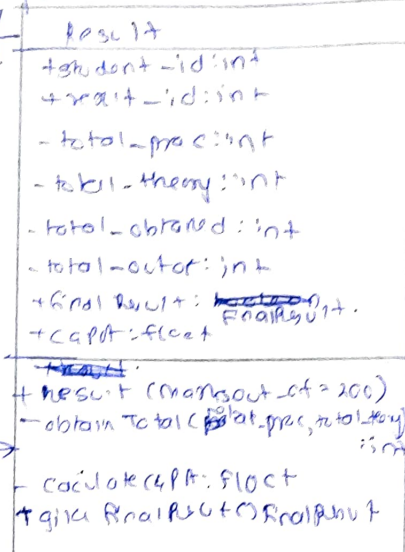 Result
+student_id:int
+result_id:int
-total_prac:int
-total_theory:int
-total_obtained:int
-total_outof:int
+final Result:
FinalResult.
+CGPA:float
+Result(marksout_of=200)
-obtain Total(total_prac,total_theory)
:int
-calculateCGPA:float
+give FinalResult()FinalResult